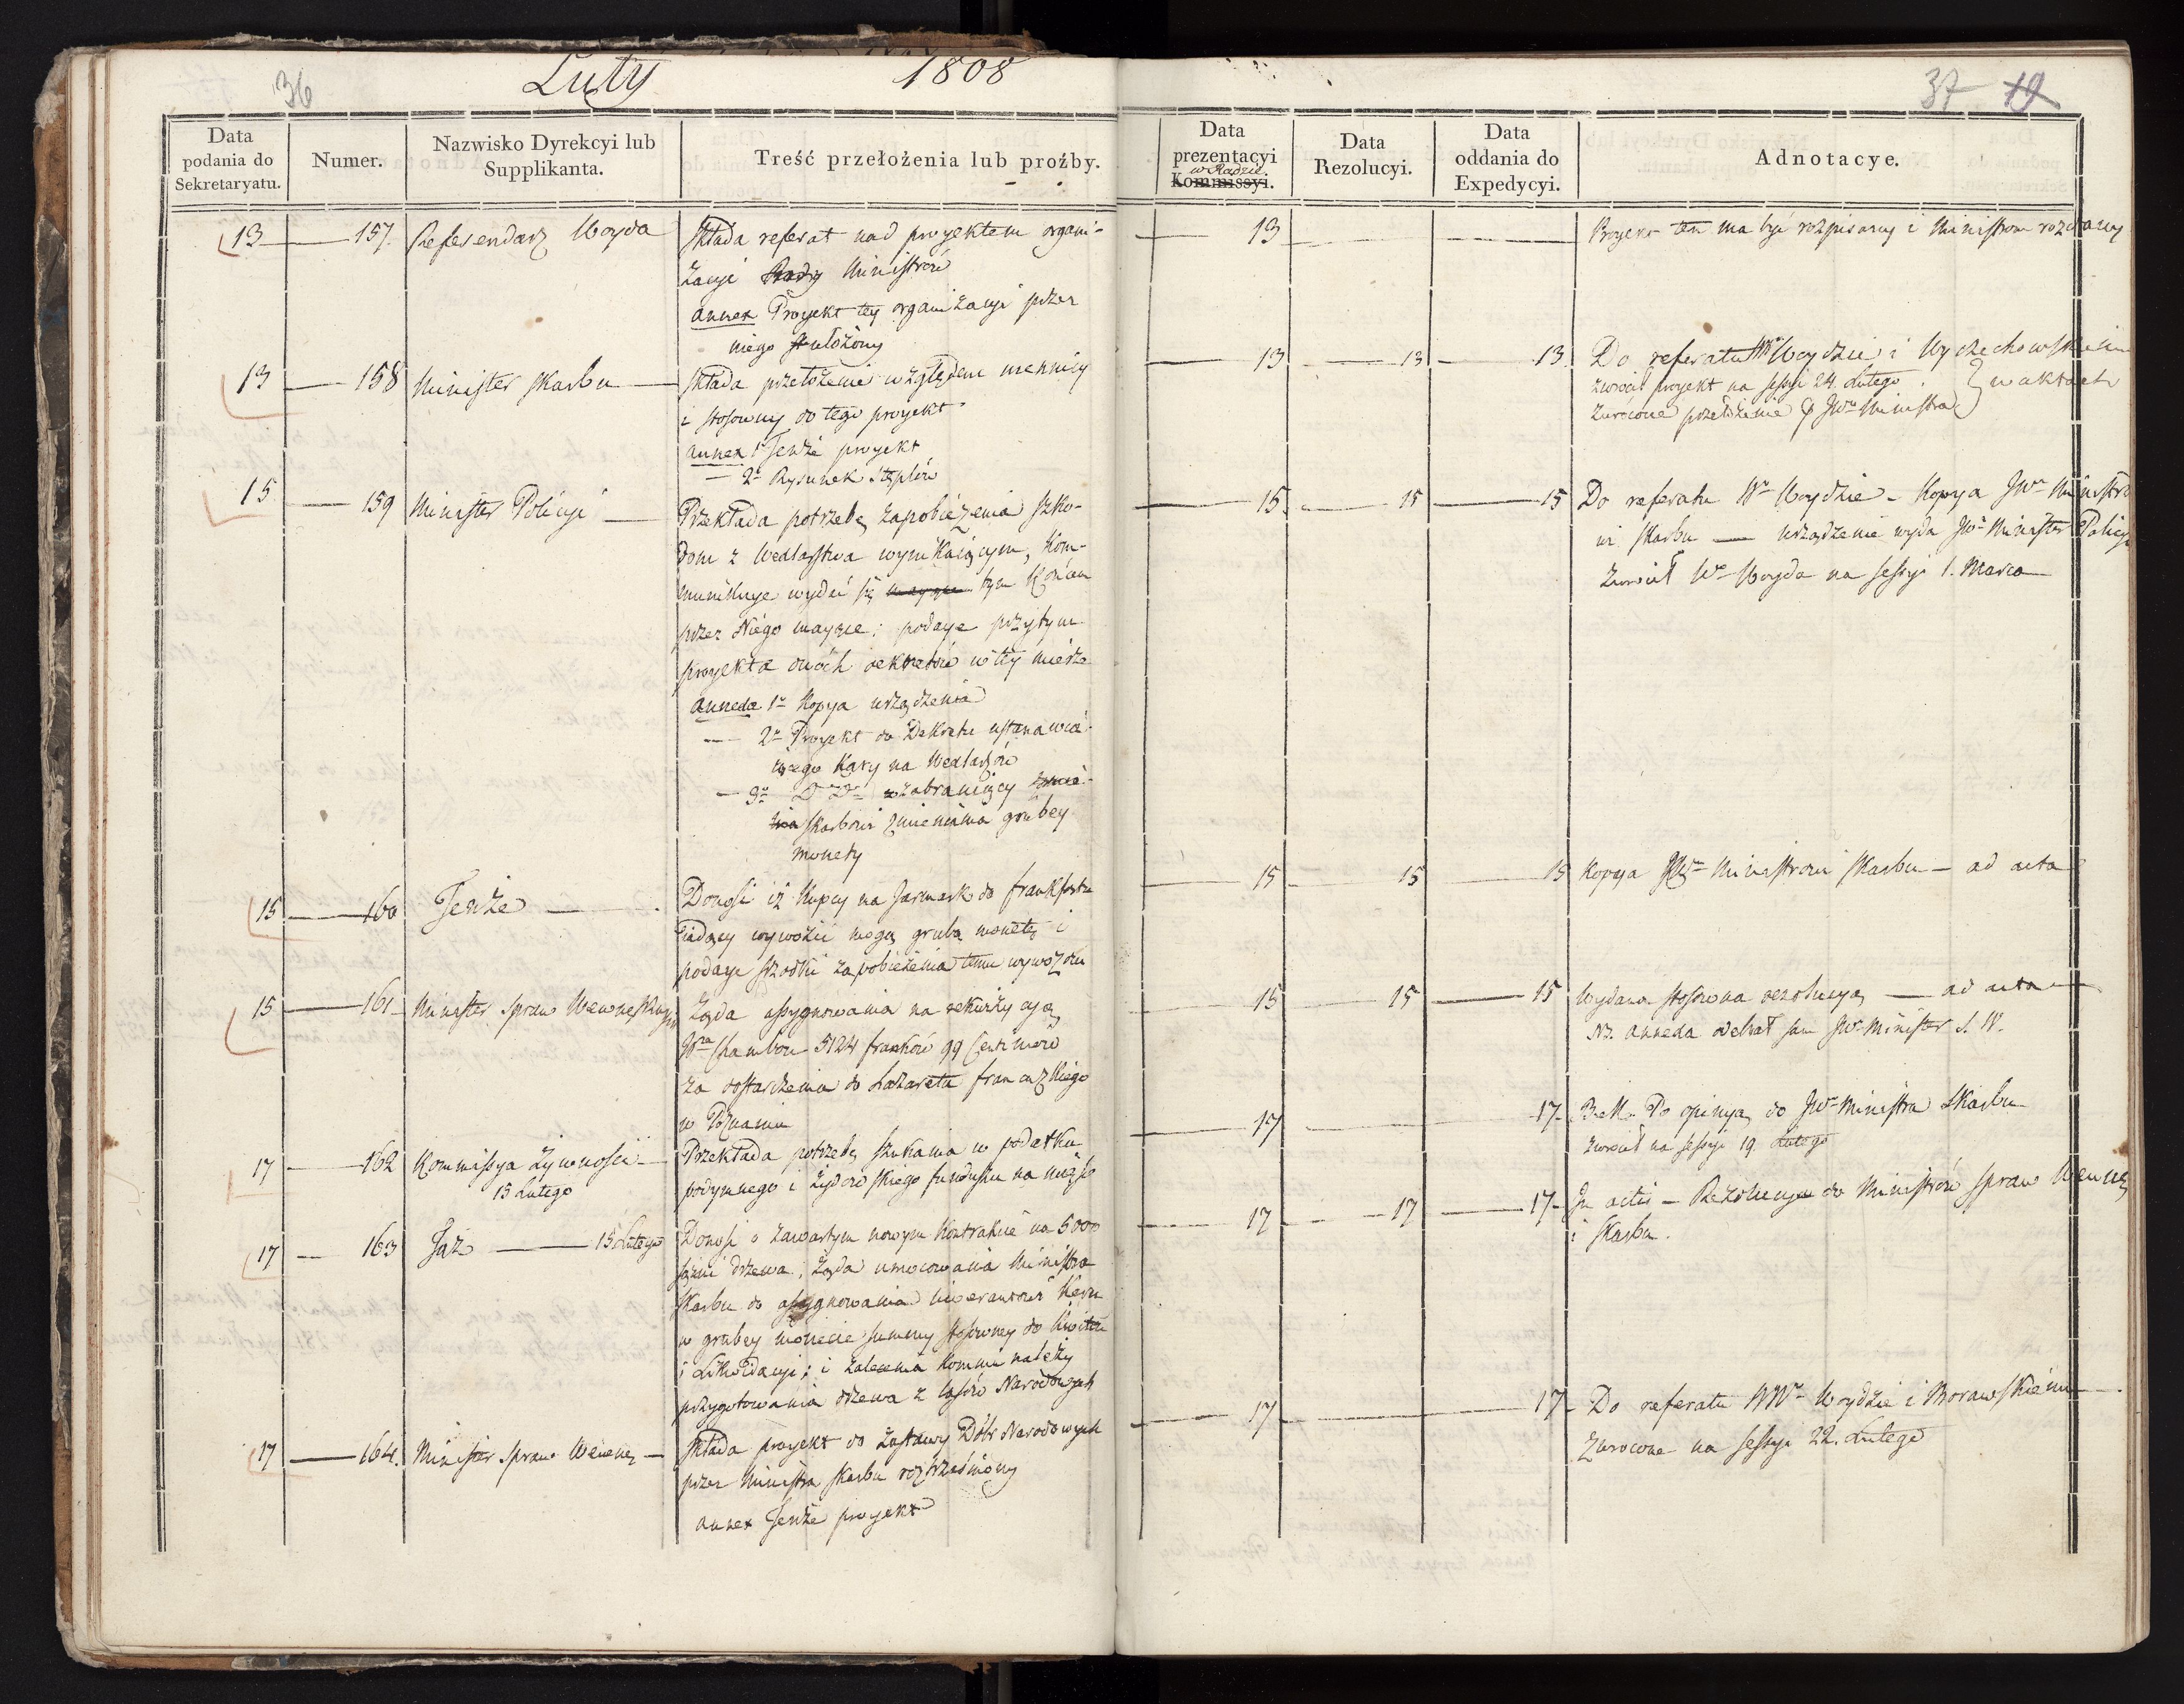 36
Luty 1808
Data podania do Sekretaryatu.
Numer.
Nazwisko Dyrekcyi lub Supplikanta.
Treść przełożenia lub proźby.
13 — 157. Referendarz Woyda
Składa referat nad proyektem organi-
zacyi Rady Ministrów
annex Proyekt tey organizacyi przez
niego ułożony
13 — 158 Minister Skarbu —
Składa przełożenie względem mennicy
i stosowny do tego proyekt
annex 1o Tenże proyekt
— 2o Rysunek Stęplów
15 — 159 Minister Policyi —
Przekłada potrzebę zapobieżenia szko-
dom z wexlarstwa wynikaiącym, kom-
munikuye wydać się tym końcem
przez Niego maiące; podaye przytym
proyekta dwóch dekretów w tey mierze
annexa 1o Kopya urządzenia
— 2o Proyekt do Dekretu ustanawia-
iącego kary na Wexlarzów
— 3o Do Do zabraniaiący
Skarbowi zmieniania grubey
monety
15 — 160 Tenże —
Donosi iż kupcy na Jarmark do Frankfortu
iadący wywozić mogą grubą monetę i
podaye szrodki zapobieżenia temu wywozowi
15 — 161 Minister Spraw Wewnętrznych
Żąda assygnowania na rekwizycyą
Wgo Chambon 5124 franków 99 Centimów
za dostarczenia do Lazaretu francuzkiego
w Poznaniu
17 — 162 Kommissya Żywności —
15 Lutego
Przekłada potrzebę szukania w podatku
podymnego i żydowskiego funduszu na mięso
17 — 163 Taż — 15 Lutego
Donosi o zawartym nowym kontrakcie na 6000
sążni drzewa; żąda umocowania Ministra
Skarbu do assygnowania liwerantowi
w grubey monecie summy stosowney do kwitu
i Likwidacyi; i zalecenia komu należy
przygotowania drzewa z lasów Narodowych
17 — 164. Minister Spraw Wewnę. —
Składa proyekt do zastawy Dóbr Narodowych
przez Ministra Skarbu roztrząśniony
annex Tenże proyekt
37 19
Data prezentacyi w Radzie Kommissyi.
Data Rezolucyi.
Data oddania do Expedycyi.
Adnotacye.
— 13 — — Proyekt ten ma być rozpisany i Ministrom rozdany
— 13 — 13 — 13 Do referatu WW Woydzie i Wyczechowskiemu
zwrócił proyekt na sessyi 24. Lutego. } w aktach
zwrócone przełożenie JWo Ministra
— 15. — 15 — 15 Do referatu Wo Woydzie – Kopya JWo Ministro-
wi Skarbu — urządzenie wyda JWo Minister Policyi
zwrócił Wo Woyda na sessyi 1. Marca
— 15 — 15 — 15 Kopya JWo Ministrowi Skarbu — ad acta
— 15 — 15 — 15 Wydana stosowna rezolucya, — ad acta —
NB. annexa odebrał sam JWo Minister S. W.
— 17 — 17- B.M. Po opinyą do JWo Ministra Skarbu
zwrócił na sessyi 19. Lutego
— 17 — 17 — 17- In actis – Rezolucye do Ministrów spraw Wewnę.
i Skarbu.
— 17 — 17- Do referatu WWo Woydzie i Morawskiemu —
zwrócone na sessyi 22. Lutego